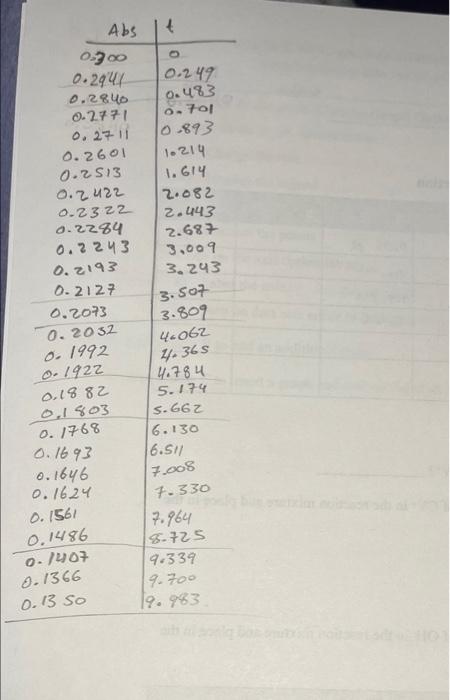 Abs t
0.300 0
0.2941 0.249
0.2840 0.483
0.2771 0.701
0.2711 0.893
0.2601 1.214
0.2513 1.614
0.2422 2.082
0.2322 2.443
0.2284 2.687
0.2243 3.009
0.2193 3.243
0.2127 3.507
0.2073 3.809
0.2032 4.062
0.1992 4.365
0.1922 4.784
0.1882 5.174
0.1803 5.662
0.1768 6.130
0.1693 6.511
0.1646 7.008
0.1624 7.330
0.1561 7.964
0.1486 8.725
0.1407 9.339
0.1366 9.700
0.1350 9.983